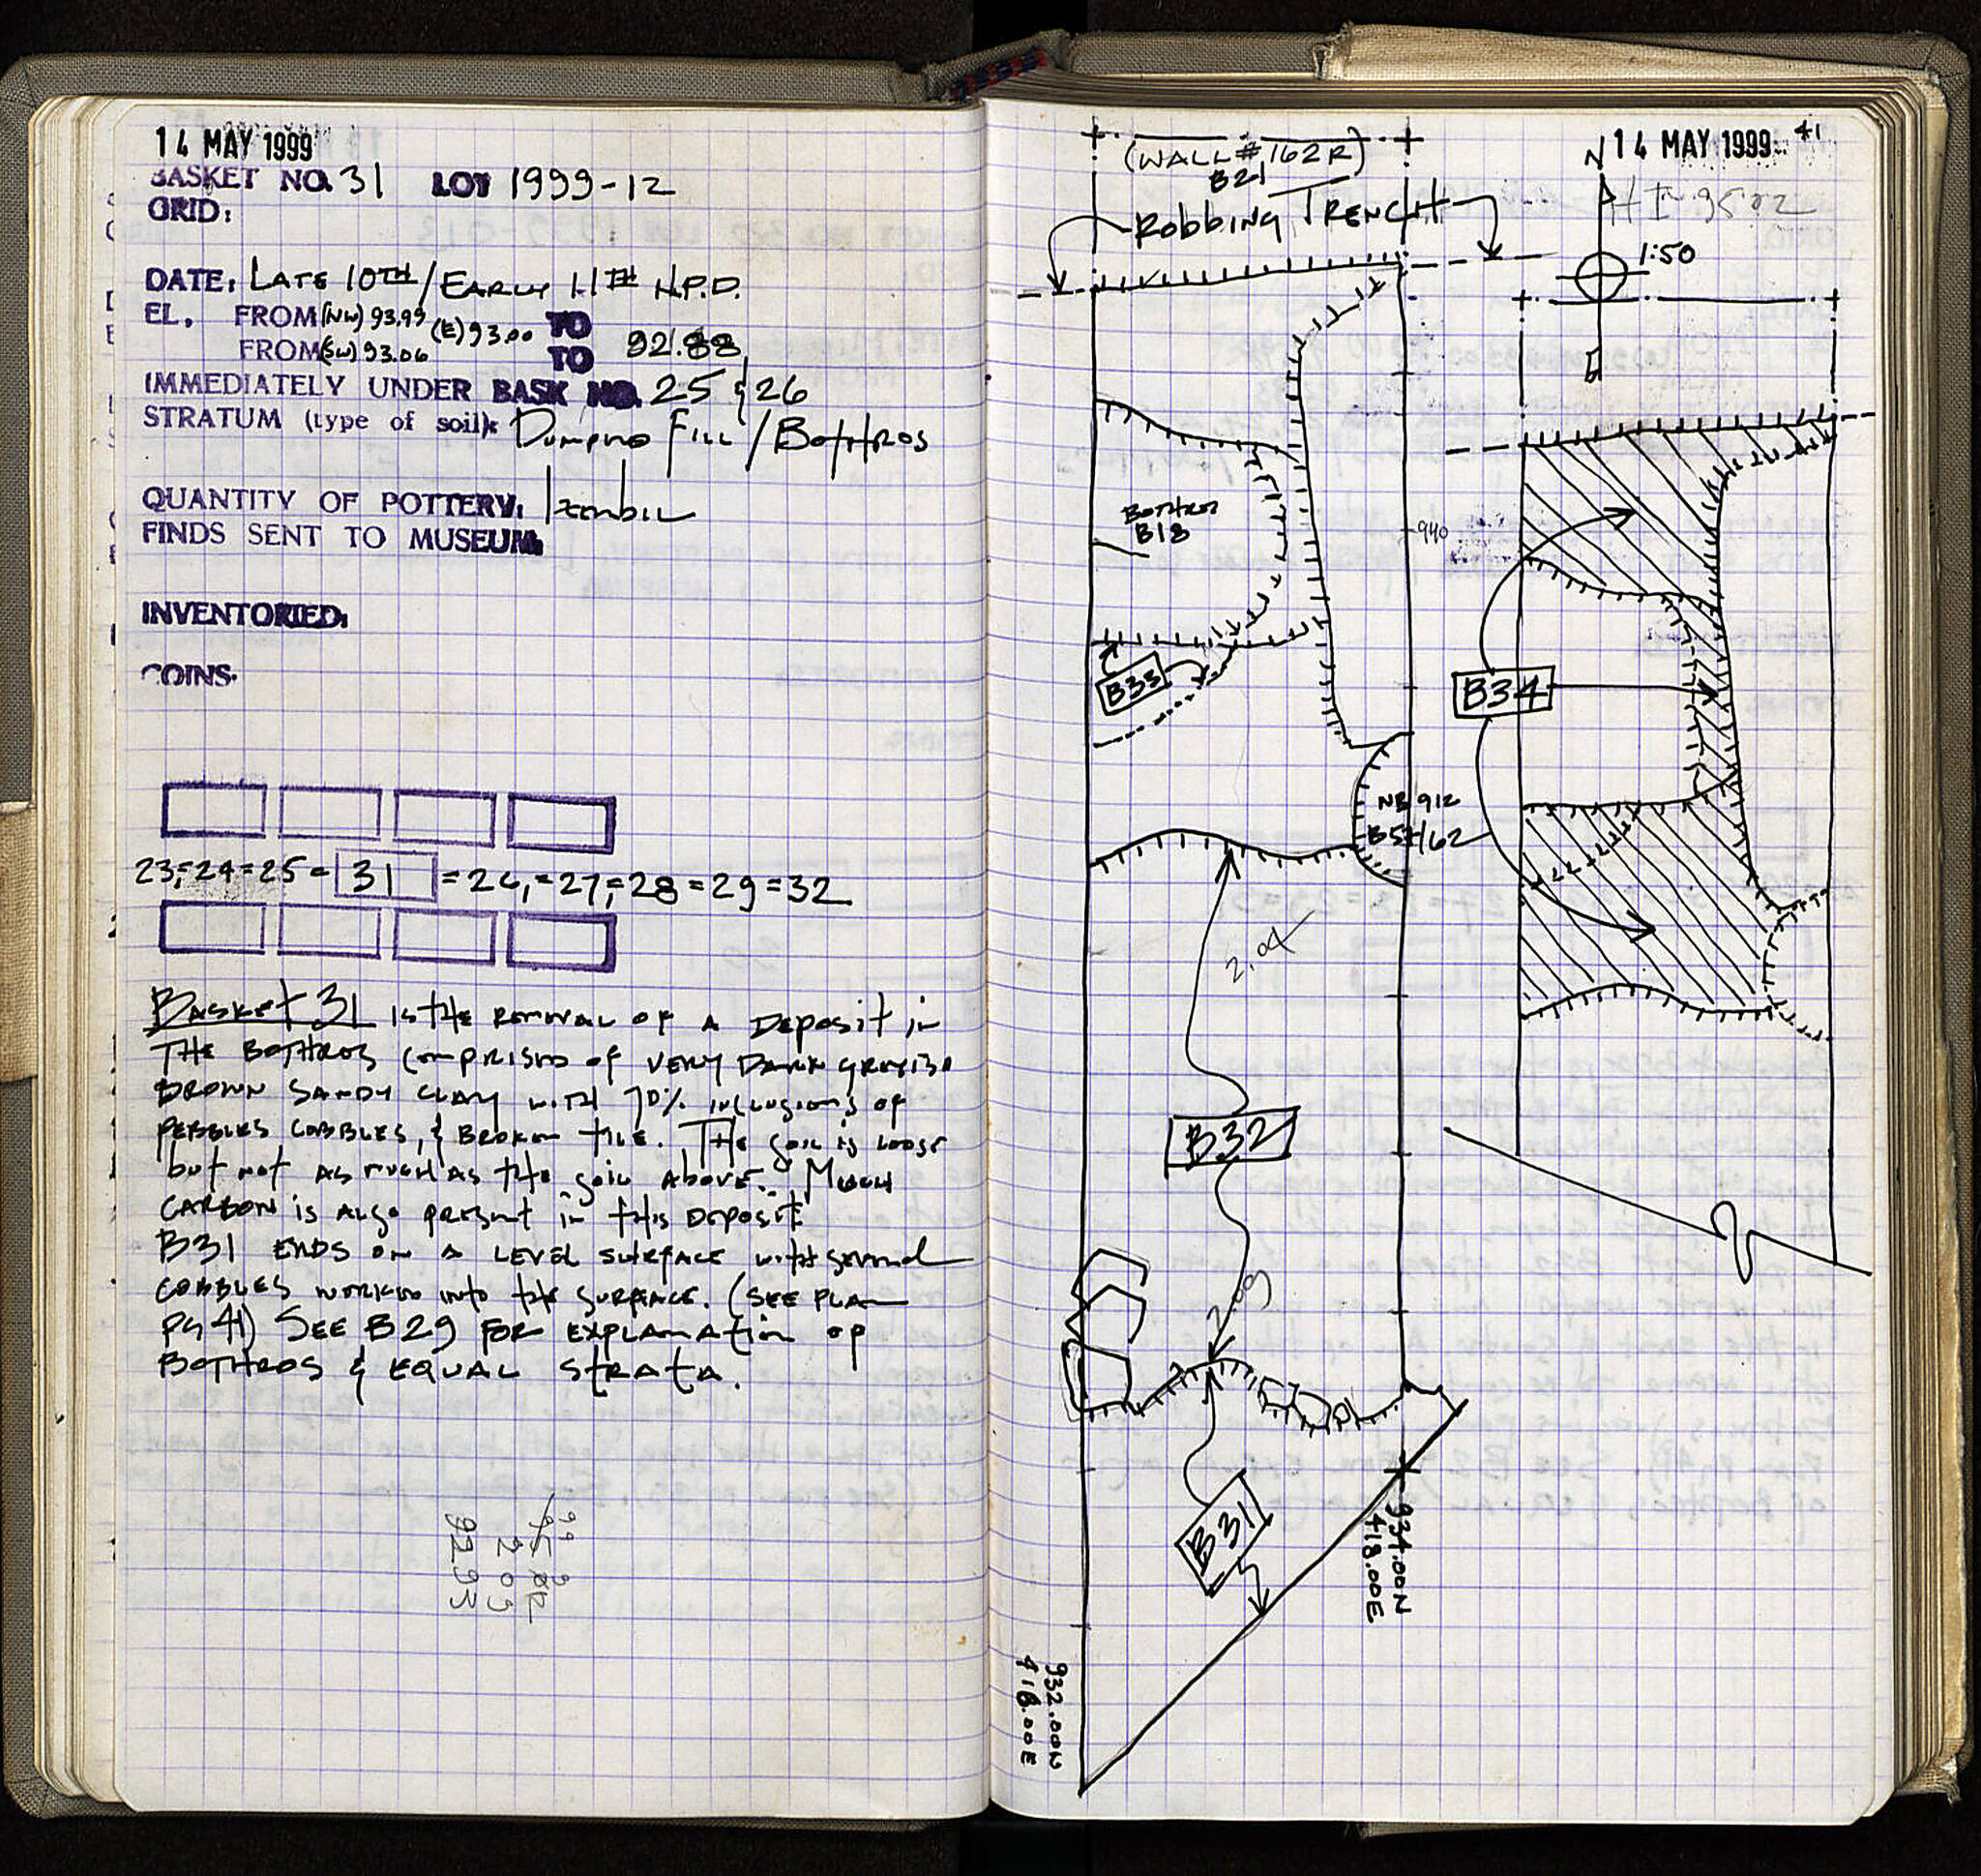 14 MAY 1999
BASKET NO. 31 LOT 1999-12
GRID:
DATE: LATE 10TH/EARLY 11TH N.P.D.
EL. FROM (NW) 93.99 (E) 93.00 TO
FROM (SW) 93.06 TO 92.88
IMMEDIATELY UNDER BASK NO. 25 & 26
STRATUM (type of soil): DUMPED FILL/BOTHROS
QUANTITY OF POTTERY:
FINDS SENT TO MUSEUM:
INVENTORIED:
COINS:
23,=24=25= 31 =26,=27,=28=29=32
BASKET 31 IS THE REMOVAL OF A DEPOSIT IN
THE BOTHROS COMPRISED OF VERY DARK GREYISH
BROWN SANDY CLAY WITH 70% INCLUSIONS OF
PEBBLES COBBLES, & BROKEN TILE. THE SOIL IS LOOSE
but not AS MUCH AS THE SOIL ABOVE. MUCH
CARBON IS ALSO PRESENT IN THIS DEPOSIT
B31 ENDS ON A LEVEL SURFACE WITH SEVERAL
COBBLES WORKED INTO THE SURFACE. (SEE PLAN
PG 41) SEE B29 FOR EXPLANATION OF
BOTHROS & EQUAL STRATA.
92.93
14 MAY 1999
41
N
(WALL # 162R)
B21
ROBBING TRENCH
HI = 95.02
1:50
BOTHROS
B18
940
B33
B34
NB 912
B57/62
2.04
B32
2.09
B31
934.00N
418.00E
932.00N
416.00E